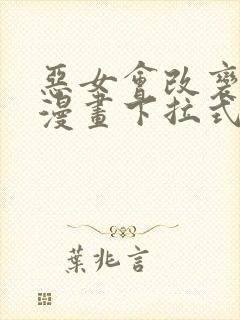 惡女會改變
漫畫下拉式
葉兆言